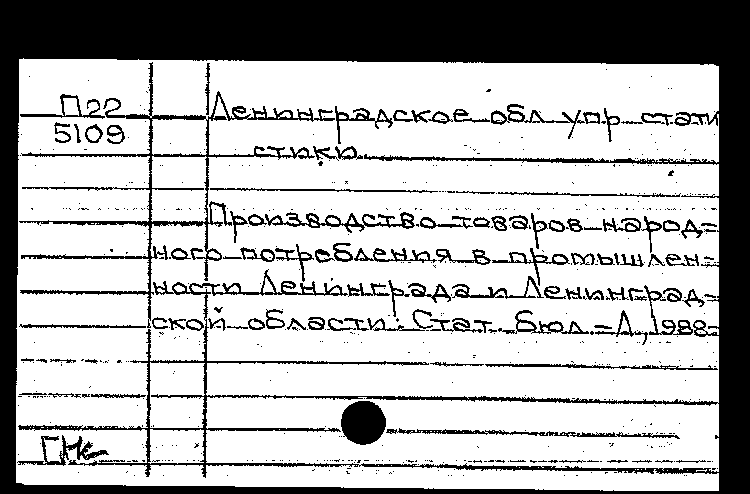 П22
5109
Ленинградское обл упр стати
стики.
Производство товаров народ=
ного потребления в промышлен=
ности Ленинграда и Ленинград=
ской области: Стат. бюл.-Л, 1988-